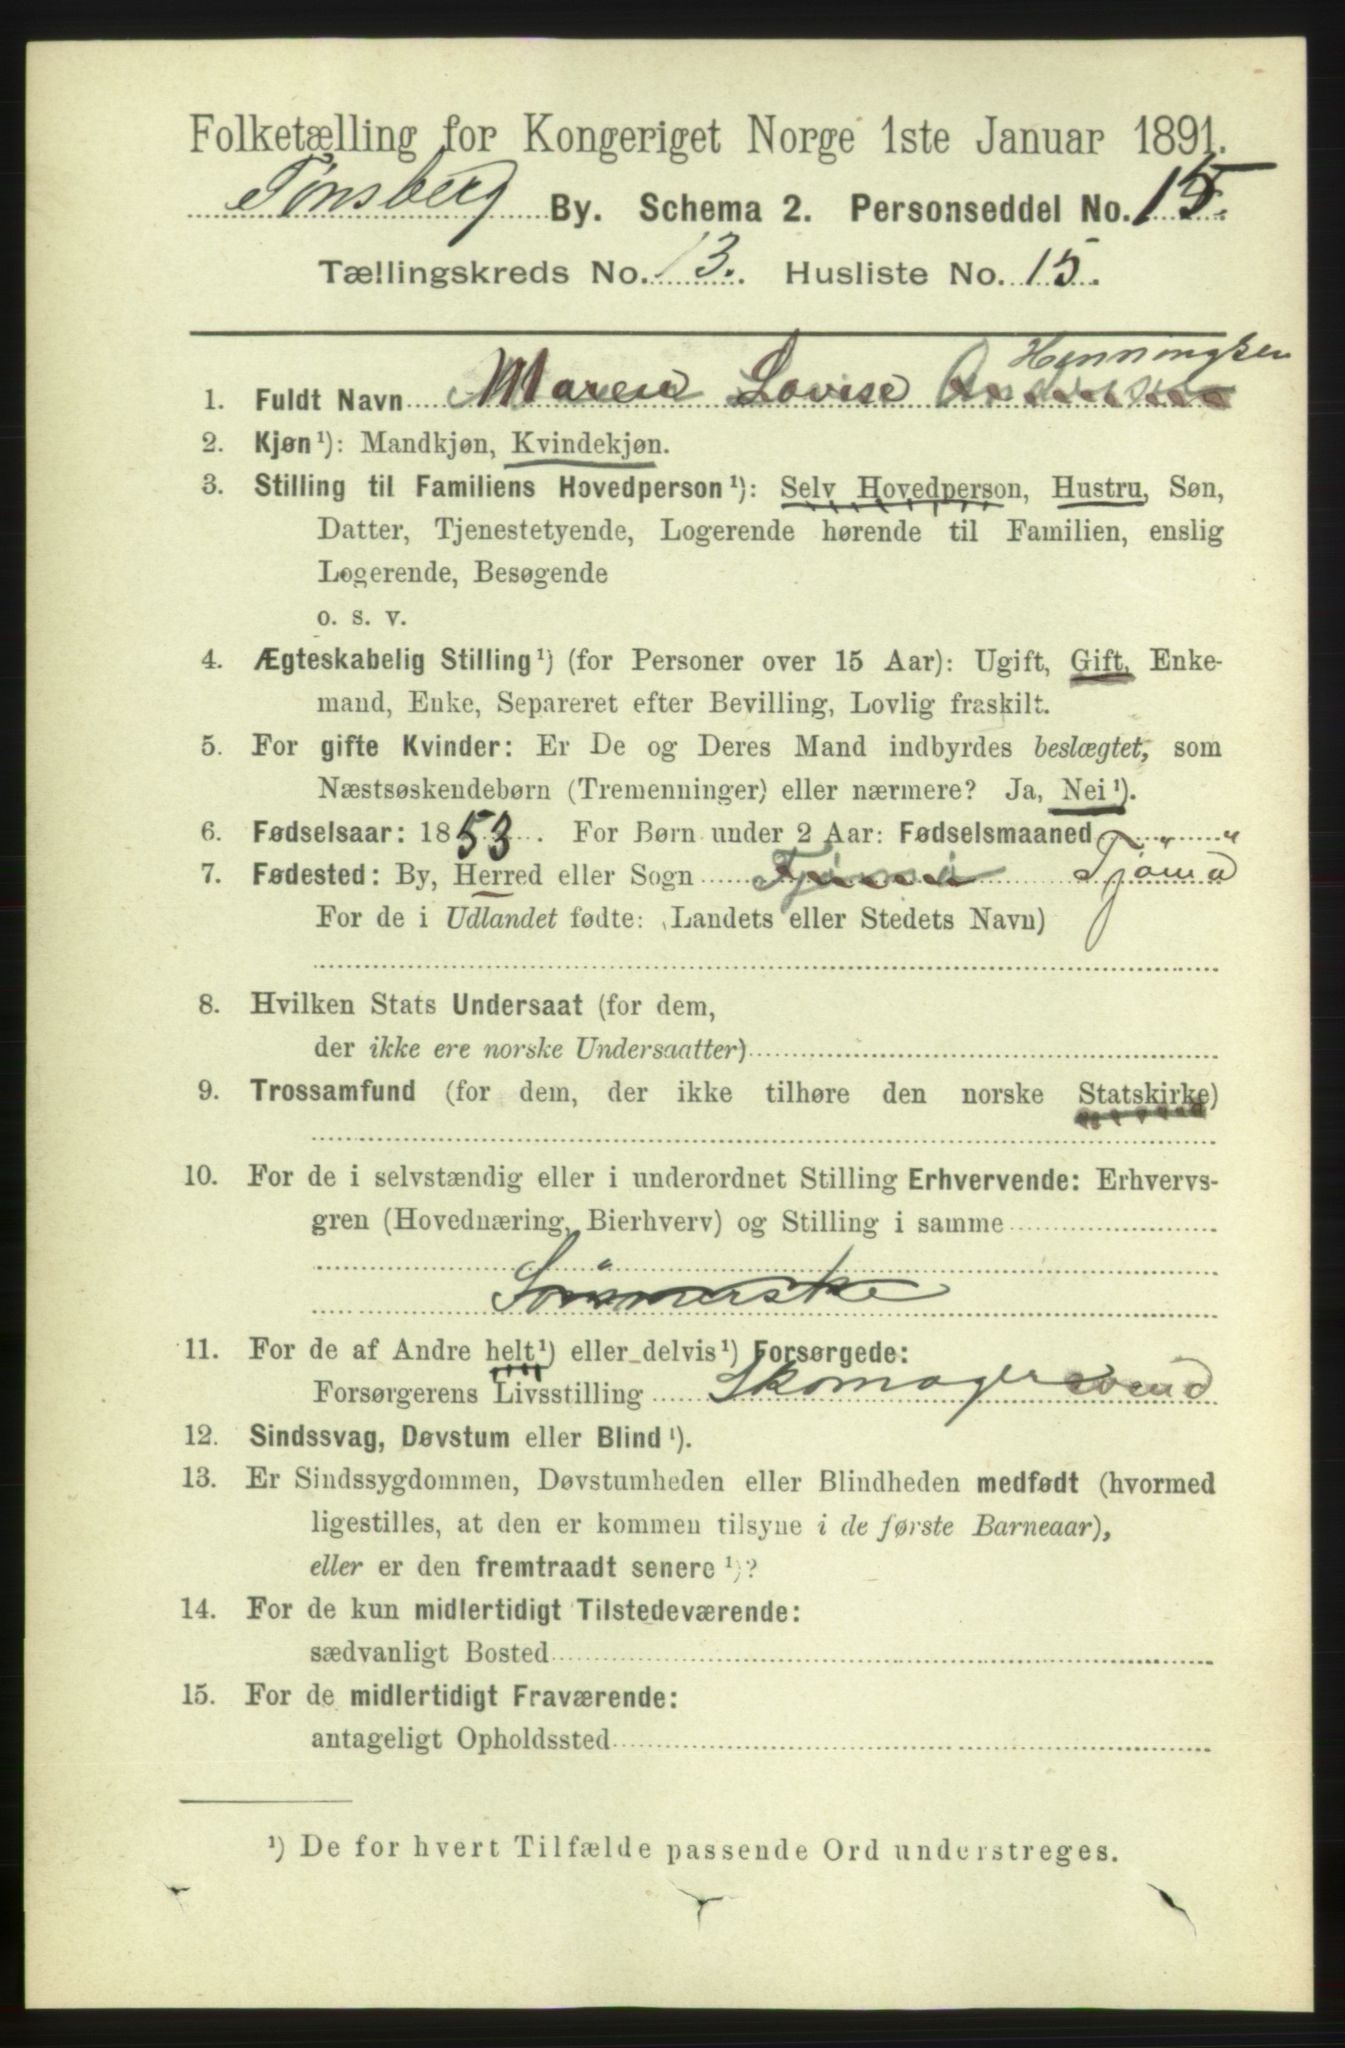 Folketælling for Kongeriget Norge 1ste Januar 1891.
Tønsberg By. Schema 2. Personseddel No. 15.
Tællingskreds No. 13. Husliste No. 15.
Henningsen
1. Fuldt Navn Maren Lovise Andersen
2. Kjøn¹): Mandkjøn, Kvindekjøn.
3. Stilling til Familiens Hovedperson¹): Selv Hovedperson, Hustru, Søn,
Datter, Tjenestetyende, Logerende hørende til Familien, enslig
Logerende, Besøgende
o. s. v.
4. Ægteskabelig Stilling¹) (for Personer over 15 Aar): Ugift, Gift, Enke-
mand, Enke, Separeret efter Bevilling, Lovlig fraskilt.
5. For gifte Kvinder: Er De og Deres Mand indbyrdes beslægtet, som
Næstsøskendebørn (Tremenninger) eller nærmere? Ja, Nei¹).
6. Fødselsaar: 1853. For Børn under 2 Aar: Fødselsmaaned
7. Fødested: By, Herred eller Sogn Tjømø
For de i Udlandet fødte: (Landets eller Stedets Navn)
8. Hvilken Stats Undersaat (for dem,
der ikke ere norske Undersaatter)
9. Trossamfund (for dem, der ikke tilhøre den norske Statskirke)
10. For de i selvstændig eller i underordnet Stilling Erhvervende: Erhvervs-
gren (Hovednæring, Bierhverv) og Stilling i samme
11. For de af Andre helt¹) eller delvis¹) Forsørgede:
Forsørgerens Livsstilling Skomagersvend
12. Sindssvag, Døvstum eller Blind¹).
13. Er Sindssygdommen, Døvstumheden eller Blindheden medfødt (hvormed
ligestilles, at den er kommen tilsyne i de første Barneaar),
eller er den fremtraadt senere¹)?
14. For de kun midlertidigt Tilstedeværende:
sædvanligt Bosted
15. For de midlertidigt Fraværende:
antageligt Opholdssted
¹) De for hvert Tilfælde passende Ord understreges.